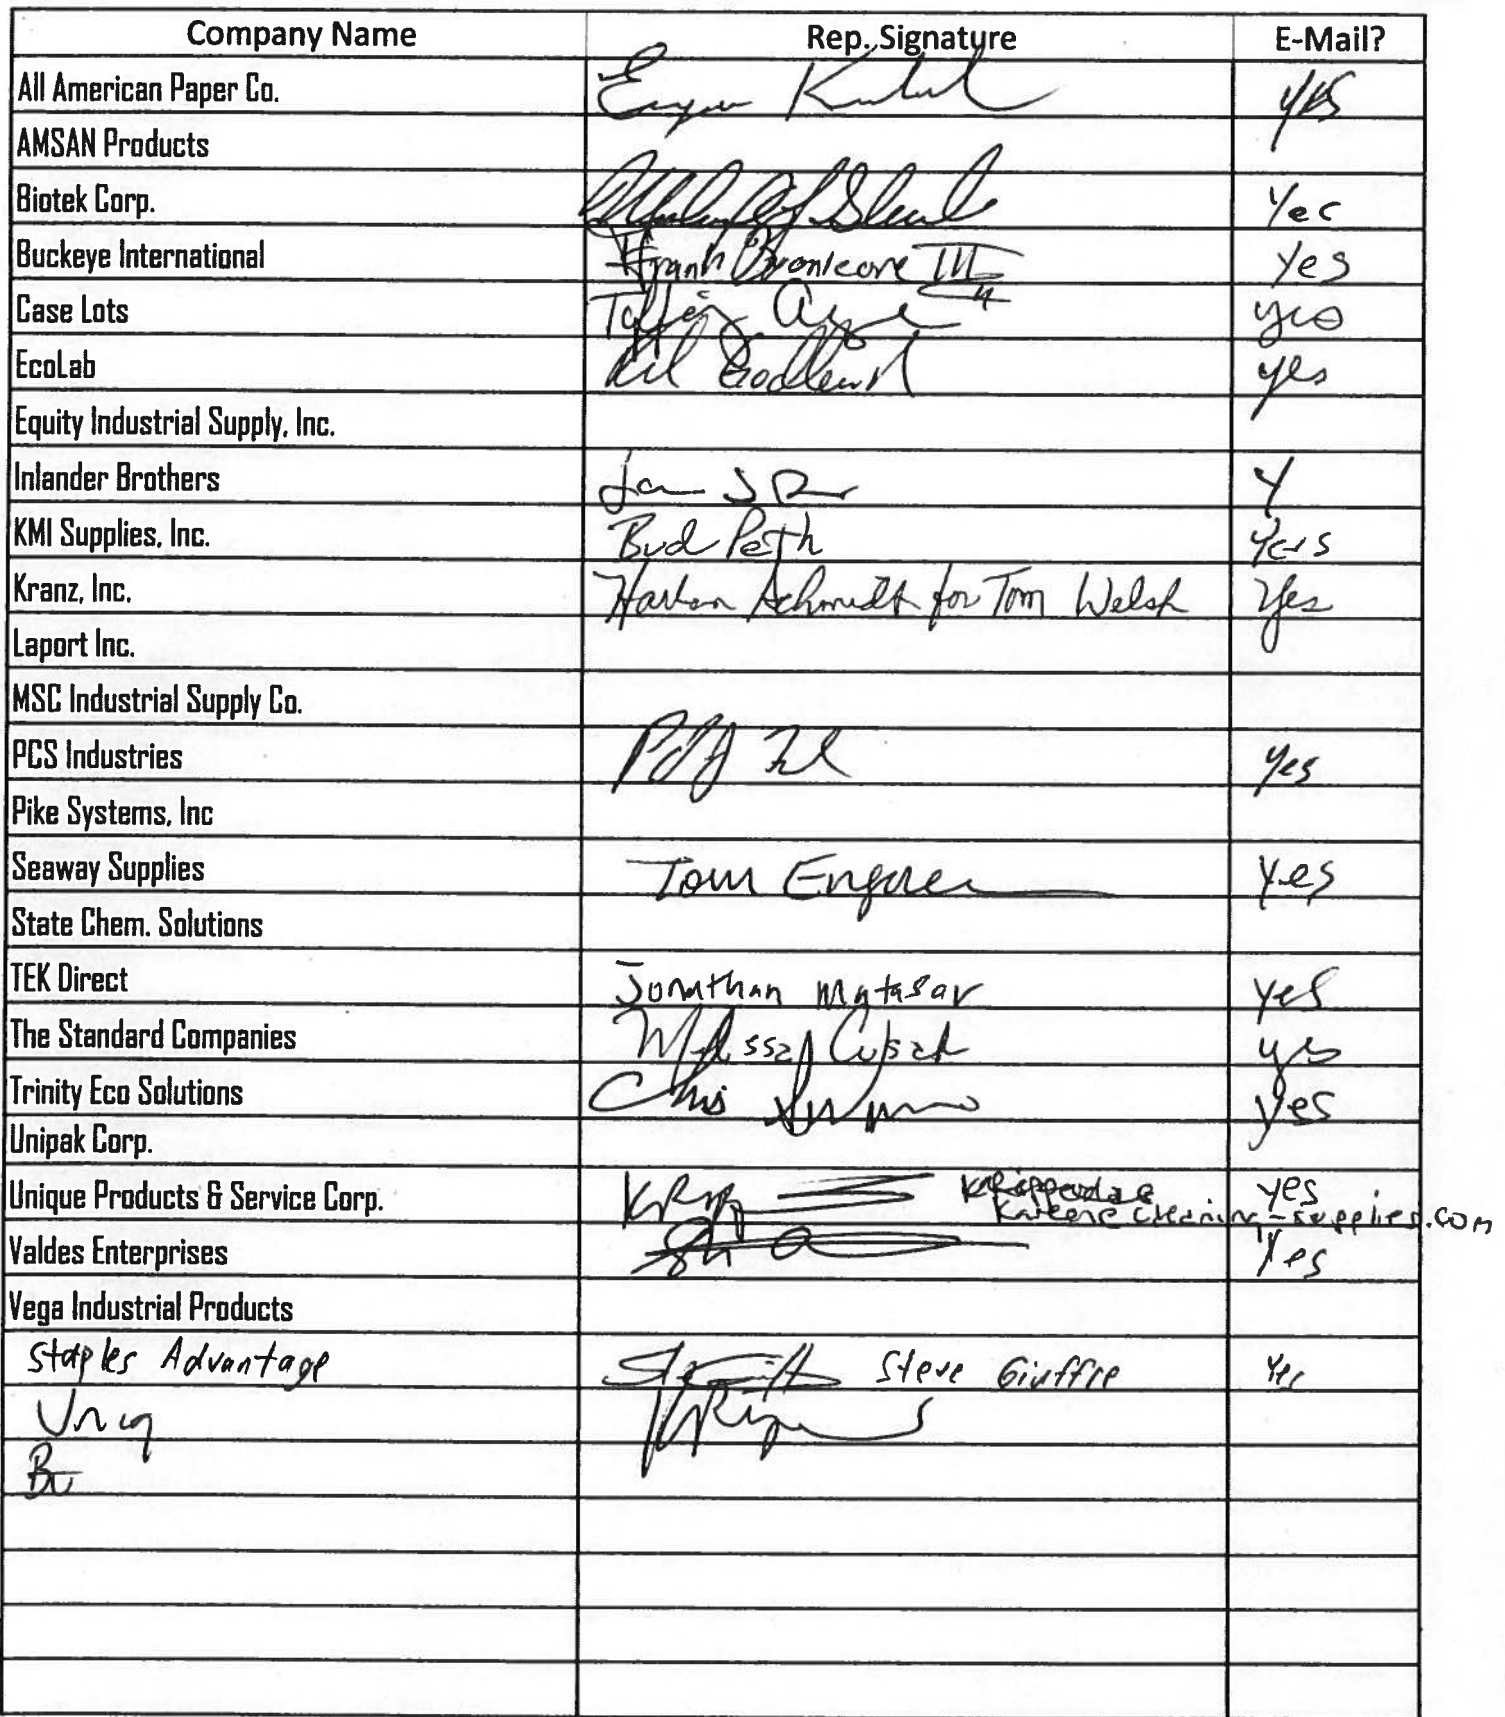 Company Name Rep. Signature E-Mail?
All American Paper Co. yes
AMSAN Products
Biotek Corp. Yes
Buckeye International Frank III Yes
Case Lots yes
EcoLab yes
Equity Industrial Supply, Inc.
Inlander Brothers Y
KMI Supplies, Inc. Bud Peth Yes
Kranz, Inc. Harlan Schmidt for Tom Welsh Yes
Laport Inc.
MSC Industrial Supply Co.
PCS Industries Yes
Pike Systems, Inc
Seaway Supplies Tom Yes
State Chem. Solutions
TEK Direct Jonathan Matasar Yes
The Standard Companies Melissa yes
Trinity Eco Solutions Chris Yes
Unipak Corp.
Unique Products & Service Corp. yes
cleaning-supplies.com
Valdes Enterprises Yes
Vega Industrial Products
Staples Advantage Steve Giuffre Yes